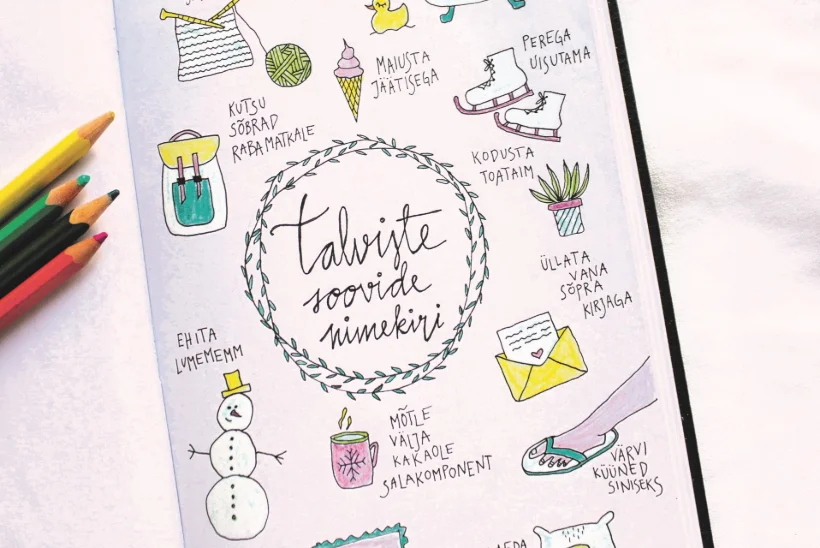 MAIUSTA
JÄÄTISEGA
PEREGA
UISUTAMA
KUTSU
SÕBRAD
RABAMATKALE
KODUSTA
TOATAIM
talviste
soovide
nimekiri
ÜLLATA
VANA
SÕPRA
KIRJAGA
EHITA
LUMEMEMM
MÕTLE
VÄLJA
KAKAOLE
SALAKOMPONENT
VÄRVI
KÜÜNED
SINISEKS